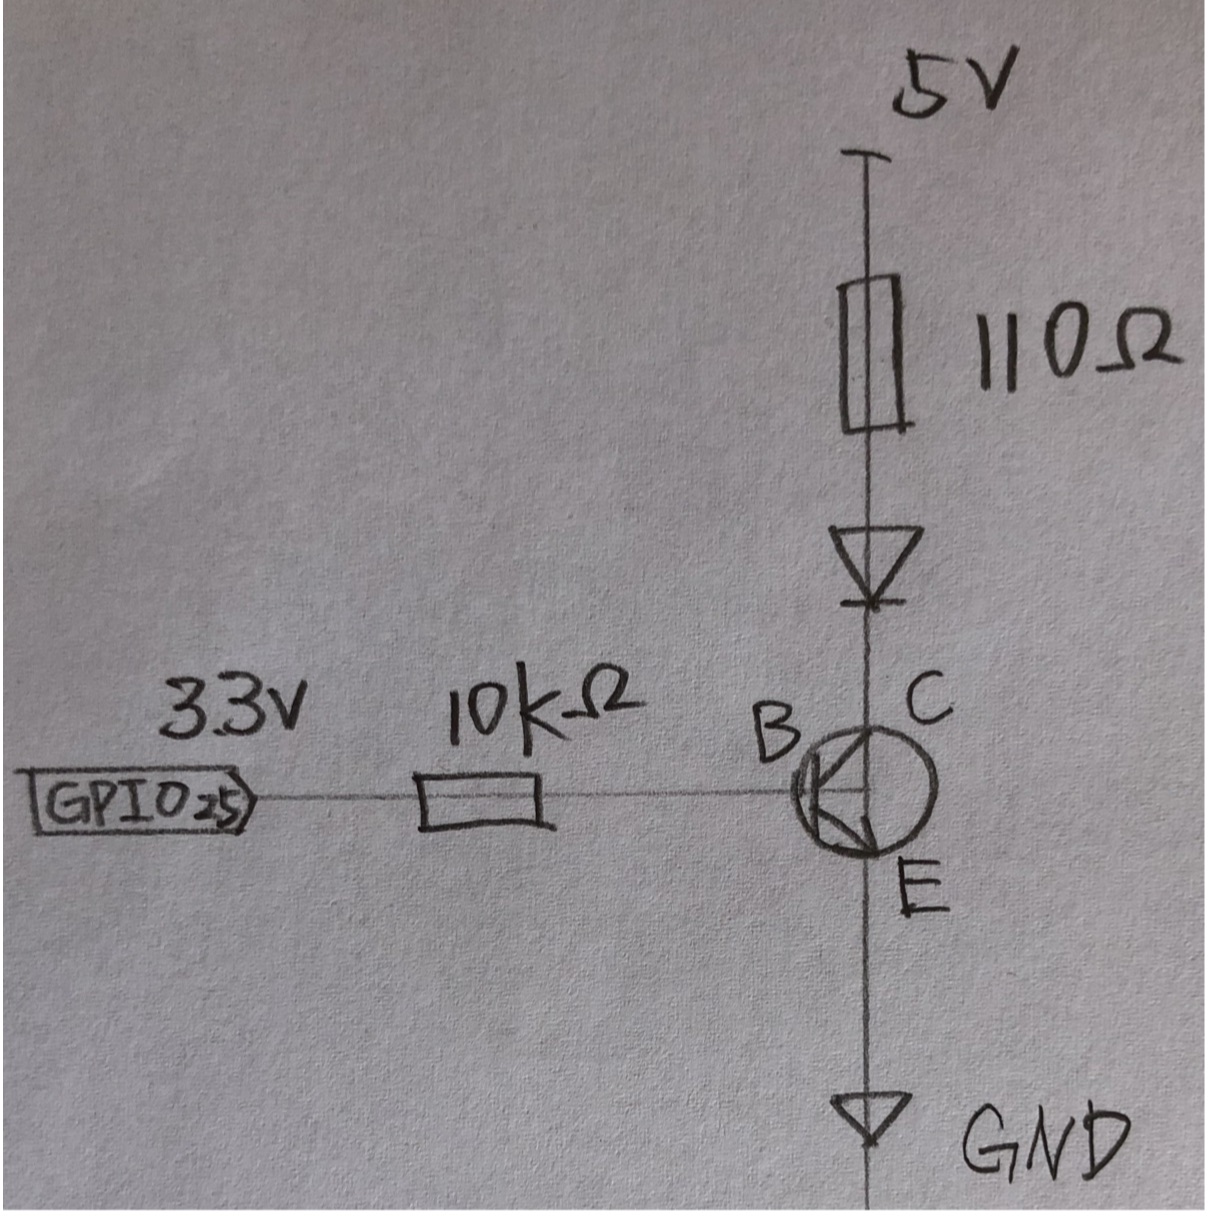 5V
110Ω
3.3V
10kΩ
B
C
GPIO25
E
GND